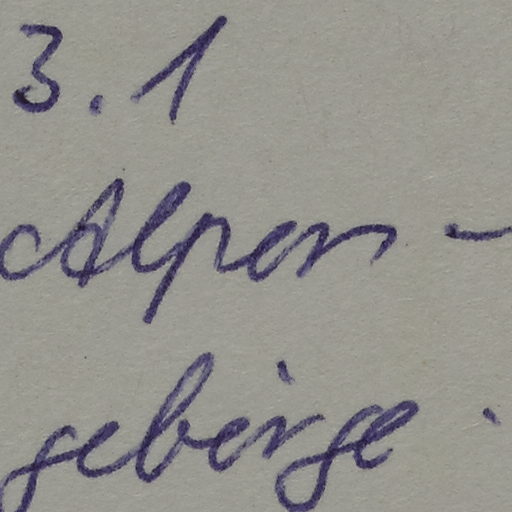 3.1
Alpen-
gebirge.